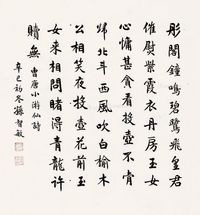 彤閣鐘鳴碧鷺飛皇君
催熨紫霞衣丹房玉女
心慵甚貪看投壺不肯
歸北斗西風吹白榆木
公相笑夜投壺花前玉
女來相問賭得青龍許
贖無 曹唐小游仙詩
辛巳初冬孫智敏